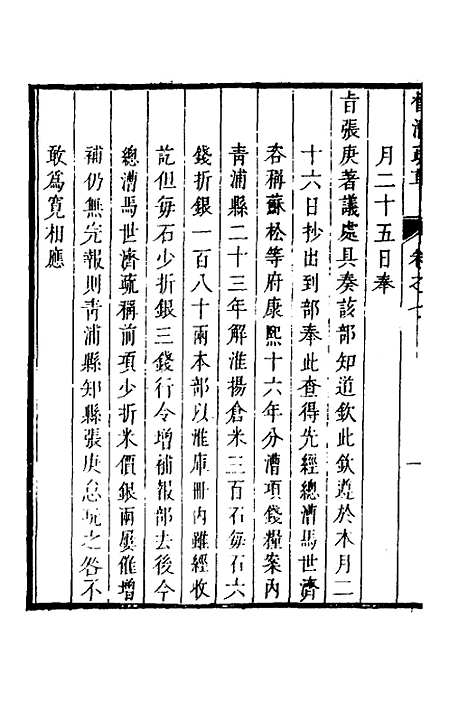 督漕疏草
卷之七
一
月二十五日奉
旨張庚著議處具奏該部知道欽此欽遵於本月二
十六日抄出到部奉此查得先經總漕馬世濟
咨稱蘇松等府康熙十六年分漕項錢糧案內
靑浦縣二十三年解淮揚倉米三百石每石六
錢折銀一百八十兩本部以淮庫冊內雖經收
訖但每石少折銀三錢行令增補報部去後今
總漕馬世濟疏稱前項少折米價銀兩屢催增
補仍無完報則靑浦縣知縣張庚怠玩之咎不
敢爲寬相應